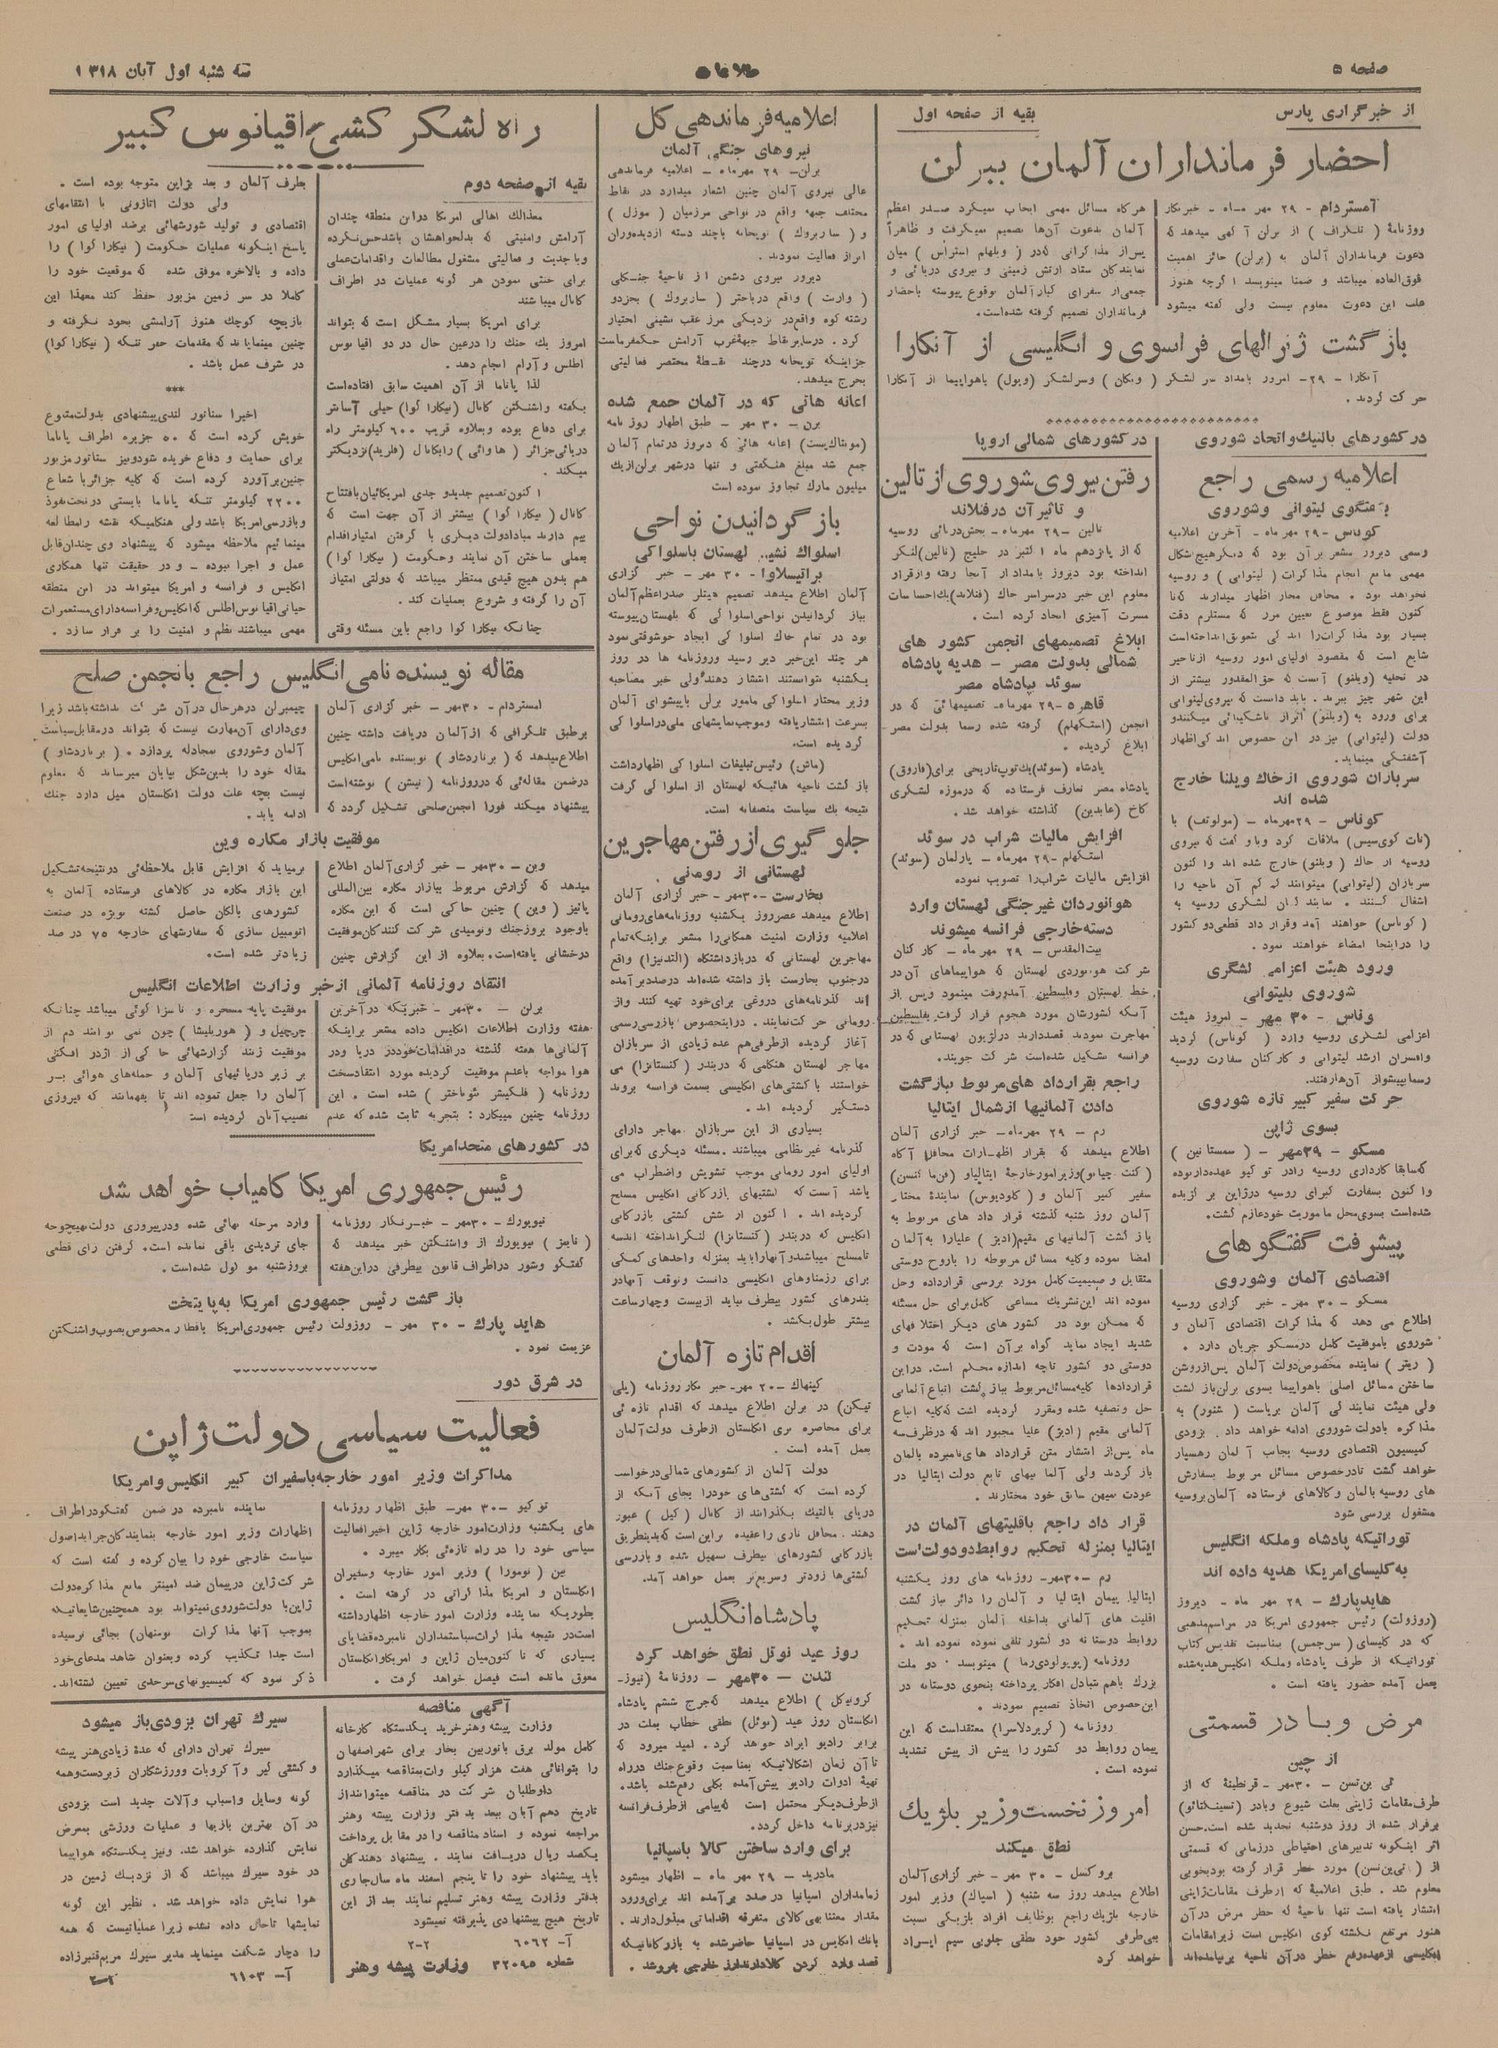 صفحه ۵
اطلاعات
سه شنبه اول آبان ۱۳۱۸
از خبرگزاری پارس
بقیه از صفحه اول
احضار فرمانداران آلمان ببرلن
آمستردام - ۲۹ مهر ماه - خبرنگار
روزنامهٔ ( تلگراف ) از برلن آگهی میدهد که
دعوت فرمانداران آلمان به (برلن) حائز اهمیت
فوق‌العاده میباشد و ضمنا مینویسد اگرچه هنوز
علت این دعوت معلوم نیست ولی گفته میشود
هرگاه مسائل مهمی ایجاب نمیکرد صدر اعظم
آلمان بدعوت آن‌ها تصمیم نمیگرفت و ظاهراً
پس‌از مذاکراتی که‌در ( ویلهلم استراس ) میان
نمایندگان ستاد ارتش زمینی و نیروی دریائی و
جمعی‌از سفرای کبارآلمان بوقوع پیوسته باحضار
فرمانداران تصمیم گرفته شده‌است.
بازگشت ژنرالهای فرانسوی و انگلیسی از آنکارا
آنکارا - ۲۹- امروز بامداد سرلشکر ( ویگان ) وسرلشکر (ویول) باهواپیما از آنکارا
حرکت کردند .
درکشورهای بالتیك‌واتحاد شوروی
اعلامیه رسمی راجع
بگفتگوی لیتوانی وشوروی
کوناس - ۲۹ مهرماه - آخرین اعلامیه
رسمی دیروز مشعر برآن بود که دیگرهیچ‌اشکال
مهمی مانع انجام مذاکرات ( لیتوانی ) و روسیه
نخواهد بود . محافل مجاز اظهار میدارند که‌تا
کنون فقط موضوع تعیین مرز که مستلزم دقت
بسیار بود مذاکرات‌را اندکی بتعویق انداخته‌است
شایع است که مقصود اولیای امور روسیه ازتأخیر
در تخلیه (ویلنو) آنست که حتی‌المقدور بیشتر از
این شهر چیز ببرند . باید دانست که نیروی‌لیتوانی
برای ورود به (ویلنو) ابراز ناشکیبائی میکنندو
دولت (لیتوانی) نیز در این خصوص اندکی‌اظهار
آشفتگی مینماید.
سربازان شوروی ازخاك ویلنا خارج
شده اند
کوناس - ۲۹مهرماه - (مولوتف) با
(نات کوی‌سیس) ملاقات کرد وباو گفت که نیروی
روسیه از خاك ( ویلنو) خارج شده اند واکنون
سربازان (لیتوانی) میتوانند کم کم آن ناحیه را
اشغال کنند . نمایندگان لشکری روسیه به
( کوناس) خواهند آمد وقرار داد قطعی‌دو کشور
را دراینجا امضاء خواهند نمود .
ورود هیئت اعزامی لشگری
شوروی بلیتوانی
کوناس - ۳۰ مهر - امروز هیئت
اعزامی لشکری روسیه وارد ( کوناس) گردید
وافسران ارشد لیتوانی و کارکنان سفارت روسیه
رسماًبپیشواز آن‌هارفتند.
حرکت سفیر کبیر تازه شوروی
بسوی ژاپن
مسکو - ۲۹مهر - ( سمستانین )
که‌سابقا کارداری روسیه رادر توکیو عهده‌داربوده
واکنون بسفارت کبرای روسیه درژاپن برگزیده
شده‌است بسوی‌محل مأموریت خودعازم گشت.
پیشرفت گفتگوهای
اقتصادی آلمان وشوروی
مسکو - ۳۰ مهر- خبر گزاری روسیه
اطلاع می دهد که مذاکرات اقتصادی آلمان و
شوروی باموفقیت کامل درمسکو جریان دارد .
( ریتر ) نماینده مخصوص‌دولت آلمان پس‌ازروشن
ساختن مسائل اصلی باهواپیما بسوی برلن‌باز گشت
ولی هیئت نمایندگی آلمان بریاست ( شنور) به
مذاکره بادولت شوروی ادامه خواهد داد . بزودی
کمیسیون اقتصادی روسیه بجانب آلمان رهسپار
خواهد گشت تادرخصوص مسائل مربوط بسفارش
های روسیه بآلمان وکالاهای فرستاده آلمان‌بروسیه
مشغول بررسی شود
توراتیکه پادشاه وملکه انگلیس
به‌کلیسای‌امریکا هدیه داده اند
هایدپارك- ۲۹ مهر ماه - دیروز
(روزولت) رئیس جمهوری امریکا در مراسم‌مذهبی
که در کلیسای (سن‌جمس) بمناسبت تقدیس کتاب
توراتیکه از طرف پادشاه وملکه انگلیس‌هدیه‌شده
بعمل آمده حضور یافته است .
مرض وبا در قسمتی
از چین
تی ین‌تسن - ۳۰مهر- قرنطینهٔ که از
طرف‌مقامات ژاپنی بعلت شیوع وبادر (تسینگتائو)
برقرار شده از روز دوشنبه تجدید شده است.حسن
اثر اینگونه تدبیرهای احتیاطی درزمانی که قسمتی
از ( تی‌ین‌تسن) مورد خطر قرار گرفته بودبخوبی
معلوم شد . طبق اعلامیهٔ که ازطرف مقامات‌ژاپنی
انتشار یافته است تنها ناحیهٔ که خطر مرض درآن
هنوز مرتفع نگشته کوی انگلیس است زیرامقامات
انگلیسی ازعهده‌رفع خطر درآن ناحیه برنیامده‌اند
درکشورهای شمالی اروپا
رفتن‌نیروی‌شوروی ازتالین
و تاثیر آن درفنلاند
تالین - ۲۹ مهرماه- بخش‌دریائی روسیه
که از یازدهم ماه اکتبر در خلیج (تالین)لنگر
انداخته بود دیروز بامداد از آنجا رفته وازقرار
معلوم این خبر درسراسر خاك (فنلاند)یك‌احساسات
مسرت آمیزی ایجاد کرده است .
ابلاغ تصمیمهای انجمن کشور های
شمالی بدولت مصر - هدیه پادشاه
سوئد بپادشاه مصر
قاهره -۲۹ مهرماه- تصمیمهائی که در
انجمن (استکهلم) گرفته شده رسماً بدولت مصر
ابلاغ گردیده .
پادشاه (سوئد)یك‌توپ‌تاریخی برای(فاروق)
پادشاه مصر تعارف فرستاده که درموزه لشکری
کاخ (عابدین) گذاشته خواهد شد .
افزایش مالیات شراب در سوئد
استکهلم- ۲۹ مهرماه - پارلمان (سوئد)
افزایش مالیات شراب‌را تصویب نموده
هوانوردان غیرجنگی لهستان وارد
دسته‌خارجی فرانسه میشوند
بیت‌المقدس - ۲۹ مهرماه - کار کنان
شرکت هوانوردی لهستان که هواپیماهای آن‌در
خط لهستان وفلسطین آمدورفت مینمود وپس از
آنکه کشورشان مورد هجوم قرار گرفت بفلسطین
مهاجرت نمودند قصددارند درلژیون لهستانی که در
فرانسه تشکیل شده‌است شرکت جویند.
راجع بقرارداد های مربوط ببازگشت
دادن آلمانیها ازشمال ایتالیا
رم - ۲۹ مهرماه- خبر گزاری آلمان
اطلاع میدهد که بقرار اظهارات محافل آگاه
( کنت چیانو)وزیرامورخارجهٔ ایتالیاو (فن‌ما کنسن)
سفیر کبیر آلمان و ( کلودیوس) نمایندهٔ مختار
آلمان روز شنبه گذشته قرار داد های مربوط به
باز گشت آلمانیهای مقیم(ادیژ ) علیارا به‌آلمان
امضا نموده وکلیه مسائل مربوطه را باروح دوستی
متقابل و صمیمیت‌کامل مورد بررسی قرارداده وحل
نموده اند این‌تشریك مساعی کامل‌برای حل مسئله
که ممکن بود در کشور های دیگر اختلافهای
شدید ایجاد نماید گواه برآن است که مودت و
دوستی دو کشور تاچه اندازه محکم است. دراین
قراردادها کلیه‌مسائل‌مربوط ببازگشت اتباع‌آلمانی
حل وتصفیه شده ومقرر گردیده است که‌کلیه اتباع
آلمانی مقیم (ادیژ) علیا مجبور اند که‌درظرف‌سه
ماه پس‌از انتشار متن قرارداد های‌نامبرده بآلمان
باز گردند ولی آلمانیهای تابع دولت ایتالیا در
عودت بمیهن سابق خود مختارند.
قرار داد راجع باقلیتهای آلمان در
ایتالیا بمنزله تحکیم روابط‌دودولت‌است
رم -۳۰مهر- روزنامه های روز یکشنبه
ایتالیا پیمان ایتالیا و آلمان را دائر بباز گشت
اقلیت های آلمانی بداخله آلمان بمنزله تحکیم
روابط دوستانه دو کشور تلقی نموده نموده اند .
روزنامه (پوپولودی‌رما ) مینویسد . دو ملت
بزرگ باهم بتبادل افکار پرداخته بنحوی دوستانه در
این‌خصوص اتخاذ تصمیم نمودند .
روزنامه ( کریردلاسرا) معتقداست که این
پیمان روابط دو کشور را پیش از پیش تشدید
نموده است .
امروز نخست‌وزیر بلژیك
نطق میکند
بروکسل - ۳۰ مهر- خبر گزاری‌آلمان
اطلاع میدهد روز سه شنبه ( اسپاك) وزیر امور
خارجه بلژیك راجع بوظایف افراد بلژیکی نسبت
ببی‌طرفی کشور خود نطقی جلوبی سیم ایراد
خواهد کرد
اعلامیه فرماندهی کل
نیروهای جنگی آلمان
برلن- ۲۹ مهرماه - اعلامیه فرماندهی
عالی نیروی آلمان چنین اشعار میدارد در نقاط
مختلف جبهه واقع در نواحی مرزمیان (موزل )
و ( ساربروك ) توپخانه باچند دسته ازدیده‌وران
ابراز فعالیت نمودند.
دیروز نیروی دشمن از ناحیهٔ جنگلی
( وارنت ) واقع درباختر ( ساربروك ) بجزدو
رشته کوه واقع‌در نزدیکی مرز عقب نشینی اختیار
کرد . درسایرنقاط جبههٔ‌غرب آرامش حکمفرماست
جزاینکه توپخانه درچند نقطهٔ مختصر فعالیتی
بخرج میدهد.
اعانه هائی که در آلمان جمع شده
برن - ۳۰ مهر - طبق اظهار روزنامه
(مونتاگ‌پست) اعانه هائی که دیروز درتمام آلمان
جمع شد مبلغ هنگفتی و تنها درشهر برلن‌ازیك
میلیون مارك تجاوز نموده است
بازگردانیدن نواحی
اسلواك نشین لهستان باسلواکی
براتیسلاوا - ۳۰ مهر - خبر گزاری
آلمان اطلاع میدهد تصمیم هیتلر صدراعظم‌آلمان
بباز گردانیدن نواحی‌اسلواکی که بلهستان‌پیوسته
بود در تمام خاك اسلواکی ایجاد خوشوقتی‌نمود
هر چند این‌خبر دیر رسید وروزنامه ها در روز
یکشنبه نتوانستند انتشار دهند ولی خبر مصاحبه
وزیر مختار اسلواکی مأمور برلن باپیشوای آلمان
بسرعت انتشاریافته وموجب‌نمایشهای ملی‌دراسلواکی
گردیده است.
(ماش) رئیس‌تبلیغات اسلواکی اظهارداشت
باز گشت ناحیه هائیکه لهستان از اسلواکی گرفت
نتیجه یك سیاست منصفانه است.
جلوگیری ازرفتن‌مهاجرین
لهستانی از رومانی
بخارست -۳۰مهر- خبر گزاری آلمان
اطلاع میدهد عصرروز یکشنبه روزنامه‌های‌رومانی
اعلامیه وزارت امنیت همگانی‌را مشعر براینکه‌تمام
مهاجرین لهستانی که دربازداشتگاه (التنیزا) واقع
درجنوب بخارست باز داشته شده‌اند درصددبرآمده
اند گذرنامه‌های دروغی برای‌خود تهیه کنند واز
رومانی حرکت‌نمایند . دراینخصوص بازرسی‌رسمی
آغاز گردیده ازطرفی‌هم عده زیادی از سربازان
مهاجر لهستان هنگامی که دربندر (کنستانزا) می
خواستند باکشتی‌های انگلیسی بسمت فرانسه بروند
دستگیر گردیده اند .
بسیاری از این سربازان مهاجر دارای
گذرنامه غیرنظامی میباشند. مسئله دیگری که‌برای
اولیای امور رومانی موجب تشویش واضطراب می
باشد آنست‌که کشتیهای بازرگانی انگلیس مسلح
گردیده اند . اکنون از شش کشتی بازرگانی
انگلیس که دربندر (کنستانزا) لنگرانداخته اندسه
تامسلح میباشدوآنهاراباید بمنزله واحدهای کمکی
برای رزمناوهای انگلیسی دانست وتوقف آنهادر
بندرهای کشور بیطرف نباید ازبیست وچهارساعت
بیشتر طول‌بکشد .
اقدام تازه آلمان
کپنهاك -۳۰ مهر- خبر نگار روزنامه (پلی
تیکن) در برلن اطلاع میدهد که اقدام تازه ئی
برای محاصره بری انگلستان ازطرف دولت‌آلمان
بعمل آمده است .
دولت آلمان از کشورهای شمالی‌درخواست
کرده است که کشتی‌های خودرا بجای آنکه از
دریای بالتیك بگذرانند از کانال ( کیل ) عبور
دهند. محافل نازی راعقیده براین است‌که بدینطریق
بازرگانی کشورهای بیطرف تسهیل شده و بازرسی
کشتی‌ها زودتر وسریع‌تر بعمل خواهد آمد.
پادشاه‌انگلیس
روز عید نوئل نطق خواهد کرد
لندن - ۳۰مهر - روزنامهٔ (نیوز-
کرونیکل ) اطلاع میدهد که‌جرج ششم پادشاه
انگلستان روز عید (نوئل) نطقی خطاب بملت در
برابر رادیو ایراد خواهد کرد . امید میرود که
تاآن زمان اشکالاتیکه بمناسبت وقوع‌جنك درراه
تهیهٔ ادوات رادیو پیش‌آمده بکلی رفع‌شده باشد.
ازطرف‌دیگر محتمل است که‌پیامی ازطرف‌فرانسه
نیزدربرنامه داخل گردد.
برای وارد ساختن کالا باسپانیا
مادرید - ۲۹ مهر ماه - اظهار میشود
زمامداران اسپانیا در صدد برآمده اند برای‌ورود
مقدار معتنابهی‌کالای متفرقه اقداماتی مبذول‌دارند.
بانك انگلیس در اسپانیا حاضرشده به بازرگانانیکه
قصد وارد کردن کالادارندارز خارجی بفروشد .
راه لشکرکشی باقیانوس کبیر
بقیه از صفحه دوم
معذالك اهالی امریکا دراین منطقه چندان
آرامش وامنیتی که بدلخواهشان باشدحس‌نکرده
وباجدیت و فعالیتی مشغول مطالعات واقدامات‌عملی
برای خنثی نمودن هر گونه عملیات در اطراف
کانال میباشند
برای امریکا بسیار مشگل است که بتواند
امروز یك جنك را درعین حال در دو اقیانوس
اطلس و آرام انجام دهد.
لذا پاناما از آن اهمیت سابق افتاده‌است
بگفته واشنگتن کانال (نیکاراگوا) خیلی آسانتر
برای دفاع بوده وبعلاوه قریب ۶۰۰ کیلومتر راه
دریائی‌جزائر (هاوائی) رابکانال (فلرید)نزدیکتر
میکند .
اکنون‌تصمیم جدیدو جدی امریکائیان‌بافتتاح
کانال (نیکاراگوا) بیشتر از آن جهت است که
بیم دارند مبادادولت دیگری با گرفتن امتیازاقدام
بعملی ساختن آن نمایند وحکومت (نیکاراگوا)
هم بدون هیچ قیدی منتظر میباشد که دولتی امتیاز
آن را گرفته و شروع بعملیات کند .
چنانکه نیکاراگوا راجع باین مسئله وقتی
بطرف آلمان و بعد بژاپن متوجه بوده است .
ولی دولت اتازونی با انتقامهای
اقتصادی و تولید شورشهائی برضد اولیای امور
پاسخ اینگونه عملیات حکومت (نیکاراگوا) را
داده و بالاخره موفق شده که موقعیت خود را
کاملا در سر زمین مزبور حفظ کند معهذا این
بازیچه کوچك هنوز آرامشی بخود نگرفته و
چنین مینمایاند که مقدمات حفر تنگه (نیکاراگوا)
در شرف عمل باشد .
***
اخیرا سناتور لندی پیشنهادی بدولت‌متبوع
خویش کرده است که ۵۰ جزیره اطراف پاناما
برای حمایت و دفاع خریده شودونیز سناتور مزبور
چنین‌برآورد کرده است که کلیه جزائر بشعاع
۲۲۰۰ کیلومتر تنگه پاناما بایستی درتحت‌نفوذ
وبازرسی‌امریکا باشد ولی هنگامیکه نقشه رامطالعه
مینمائیم ملاحظه میشود که پیشنهاد وی چندان‌قابل
عمل و اجرا نبوده - و در حقیقت تنها همکاری
انگلیس و فرانسه و امریکا میتواند در این منطقه
حیاتی‌اقیانوس‌اطلس‌که انگلیس‌وفرانسه‌دارای‌مستعمرات
مهمی میباشند نظم و امنیت را بر قرار سازد .
مقاله نویسنده نامی‌انگلیس راجع بانجمن صلح
امستردام - ۳۰مهر - خبر گزاری آلمان
برطبق تلگرافی که ازآلمان دریافت داشته چنین
اطلاع‌میدهد که ( برناردشاو) نویسنده نامی‌انگلیس
درضمن مقاله‌ئی که درروزنامه ( نیشن ) نوشته‌است
پیشنهاد میکند فورا انجمن‌صلحی تشکیل گردد که
چیمبرلن درهرحال درآن شرکت نداشته‌باشد زیرا
وی‌دارای آن‌مهارت نیست که بتواند درمقابل‌سیاست
آلمان وشوروی بمجادله پردازد . ( برناردشاو )
مقاله خود را بدین‌شکل بپایان میرساند که معلوم
نیست بچه علت دولت انگلستان میل دارد جنك
ادامه یابد.
موفقیت بازار مکاره وین
وین -۳۰مهر - خبر گزاری‌آلمان اطلاع
میدهد که گزارش مربوط ببازار مکاره بین‌المللی
پائیز ( وین ) چنین حاکی است که این مکاره
باوجود بروزجنك ونومیدی شرکت کنندگان‌موفقیت
درخشانی یافته‌است. بعلاوه از این گزارش چنین
برمیاید که افزایش قابل ملاحظه‌ئی درنتیجه‌تشکیل
این بازار مکاره در کالاهای فرستاده آلمان به
کشورهای بالکان حاصل گشته بویژه در صنعت
اتومبیل سازی که سفارشهای خارجه ۷۵ در صد
زیادتر شده است.
انتقاد روزنامه آلمانی ازخبر وزارت اطلاعات انگلیس
برلن - ۳۰مهر- خبریکه درآخرین
هفته وزارت اطلاعات انگلیس داده مشعر براینکه
آلمانی‌ها هفته گذشته دراقدامات‌خوددر دریا ودر
هوا مواجه باعدم موفقیت گردیده مورد انتقادسخت
روزنامه ( فلکیشر بئوباختر ) شده است . این
روزنامه چنین مینگارد : بتجربه ثابت شده که عدم
موفقیت پایه مسخره و ناسزاگوئی میباشد چنانکه
چرچیل و (هوربلیشا) چون نمی توانند دم از
موفقیت زنند گزارشهائی حاکی از اژدر افکنی
بر زیر دریائیهای آلمان و حمله‌های هوائی بر
آلمان را جعل نموده‌اند تا بفهمانند که فیروزی
نصیب‌آنان گردیده است
در کشورهای متحدامریکا
رئیس‌جمهوری امریکا کامیاب خواهد شد
نیویورك -۳۰مهر - خبرنگار روزنامه
( تایمز ) نیویورك از واشنگتن خبر میدهد که
گفتگو وشور دراطراف قانون بیطرفی دراین‌هفته
وارد مرحله نهائی شده ودرپیروزی دولت‌بهیچوجه
جای تردیدی باقی نمانده است. گرفتن رأی قطعی
بروزشنبه موکول شده‌است.
بازگشت رئیس جمهوری امریکا به‌پایتخت
هاید پارك - ۳۰ مهر - روزولت رئیس جمهوری‌امریکا باقطار مخصوص‌بصوب‌واشنگتن
عزیمت نمود .
در شرق دور
فعالیت سیاسی دولت‌ژاپن
مذاکرات وزیر امور خارجه‌باسفیران کبیر انگلیس‌وامریکا
توکیو -۳۰ مهر- طبق اظهار روزنامه
های یکشنبه وزارت‌امور خارجه ژاپن اخیرافعالیت
سیاسی خود را در راه تازه‌ئی بکار میبرد .
بین ( نومورا ) وزیر امور خارجه وسفیران
انگلستان و امریکا مذاکراتی در گرفته است .
بطوریکه نماینده وزارت امور خارجه اظهارداشته
است‌در نتیجه مذاکرات‌سیاستمداران نامبرده‌قضایای
بسیاری که تاکنون‌میان ژاپن و امریکاوانگلستان
معوق مانده است فیصل خواهد گرفت .
نماینده نامبرده در ضمن گفتگودراطراف
اظهارات وزیر امور خارجه بنمایندگان‌جرایداصول
سیاست خارجی خود را بیان کرده و گفته است که
شرکت‌ژاپن درپیمان ضد کمینترن مانع مذاکره‌دولت
ژاپن‌با دولت‌شوروی‌نمیتواند بود همچنین‌شایعاتیکه
بموجب آنها مذاکرات (نومنهان) بجائی نرسیده
است جداً تکذیب کرده وبعنوان شاهد مدعای‌خود
ذکر نمود که کمیسیونهای سرحدی تعیین گشته‌اند.
آگهی مناقصه
وزارت پیشه وهنر خرید یکدستگاه کارخانه
کامل مولد برق باتوربین بخار برای شهر اصفهان
را بتوانائی هفت هزار کیلو وات‌بمناقصه میگذارد
داوطلبان شرکت در مناقصه میتواننداز
تاریخ دهم آبان ببعد بدفتر وزارت پیشه وهنر
مراجعه نموده و اسناد مناقصه را در مقابل پرداخت
یکصد ریال دریافت نمایند . پیشنهاد دهندگان
باید پیشنهاد خود را تا پنجم اسفند ماه سال‌جاری
بدفتر وزارت پیشه وهنر تسلیم نمایند بعد از این
تاریخ هیچ پیشنهادی پذیرفته نمیشود
آ- ۶۰۶۲
۲-۲
شماره ۳۲۰۹۵
وزارت پیشه وهنر
سیرك تهران بزودی‌باز میشود
سیرك تهران دارای که عدهٔ زیادی‌هنر پیشه
و کشتی گیر وآکروبات وورزشکاران زبردست‌وهمه
گونه وسایل واسباب وآلات جدید است بزودی
در آن بهترین بازیها و عملیات ورزشی بمعرض
نمایش گذارده خواهد شد. ونیز یکدستگاه هواپیما
در خود سیرك میباشد که از نزدیك زمین در
هوا نمایش داده خواهد شد . نظیر این گونه
نمایشها تاحال داده نشده زیرا عملیاتیست که همه
را دچار شگفت مینماید مدیر سیرك مریم‌قنبرزاده
آ- ۶۱۰۳